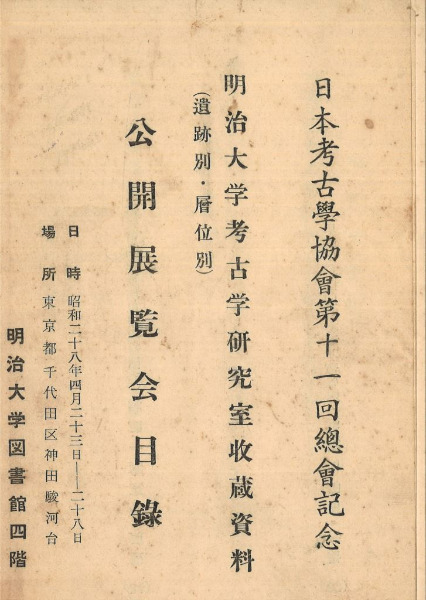 日本考古學協會第十一回總會記念
明治大学考古学研究室收蔵資料
(遺跡別・層位別)
公開展覧会目錄
日時 昭和二十八年四月二十三日——二十八日
場所 東京都千代田区神田駿河台
明治大学図書館四階